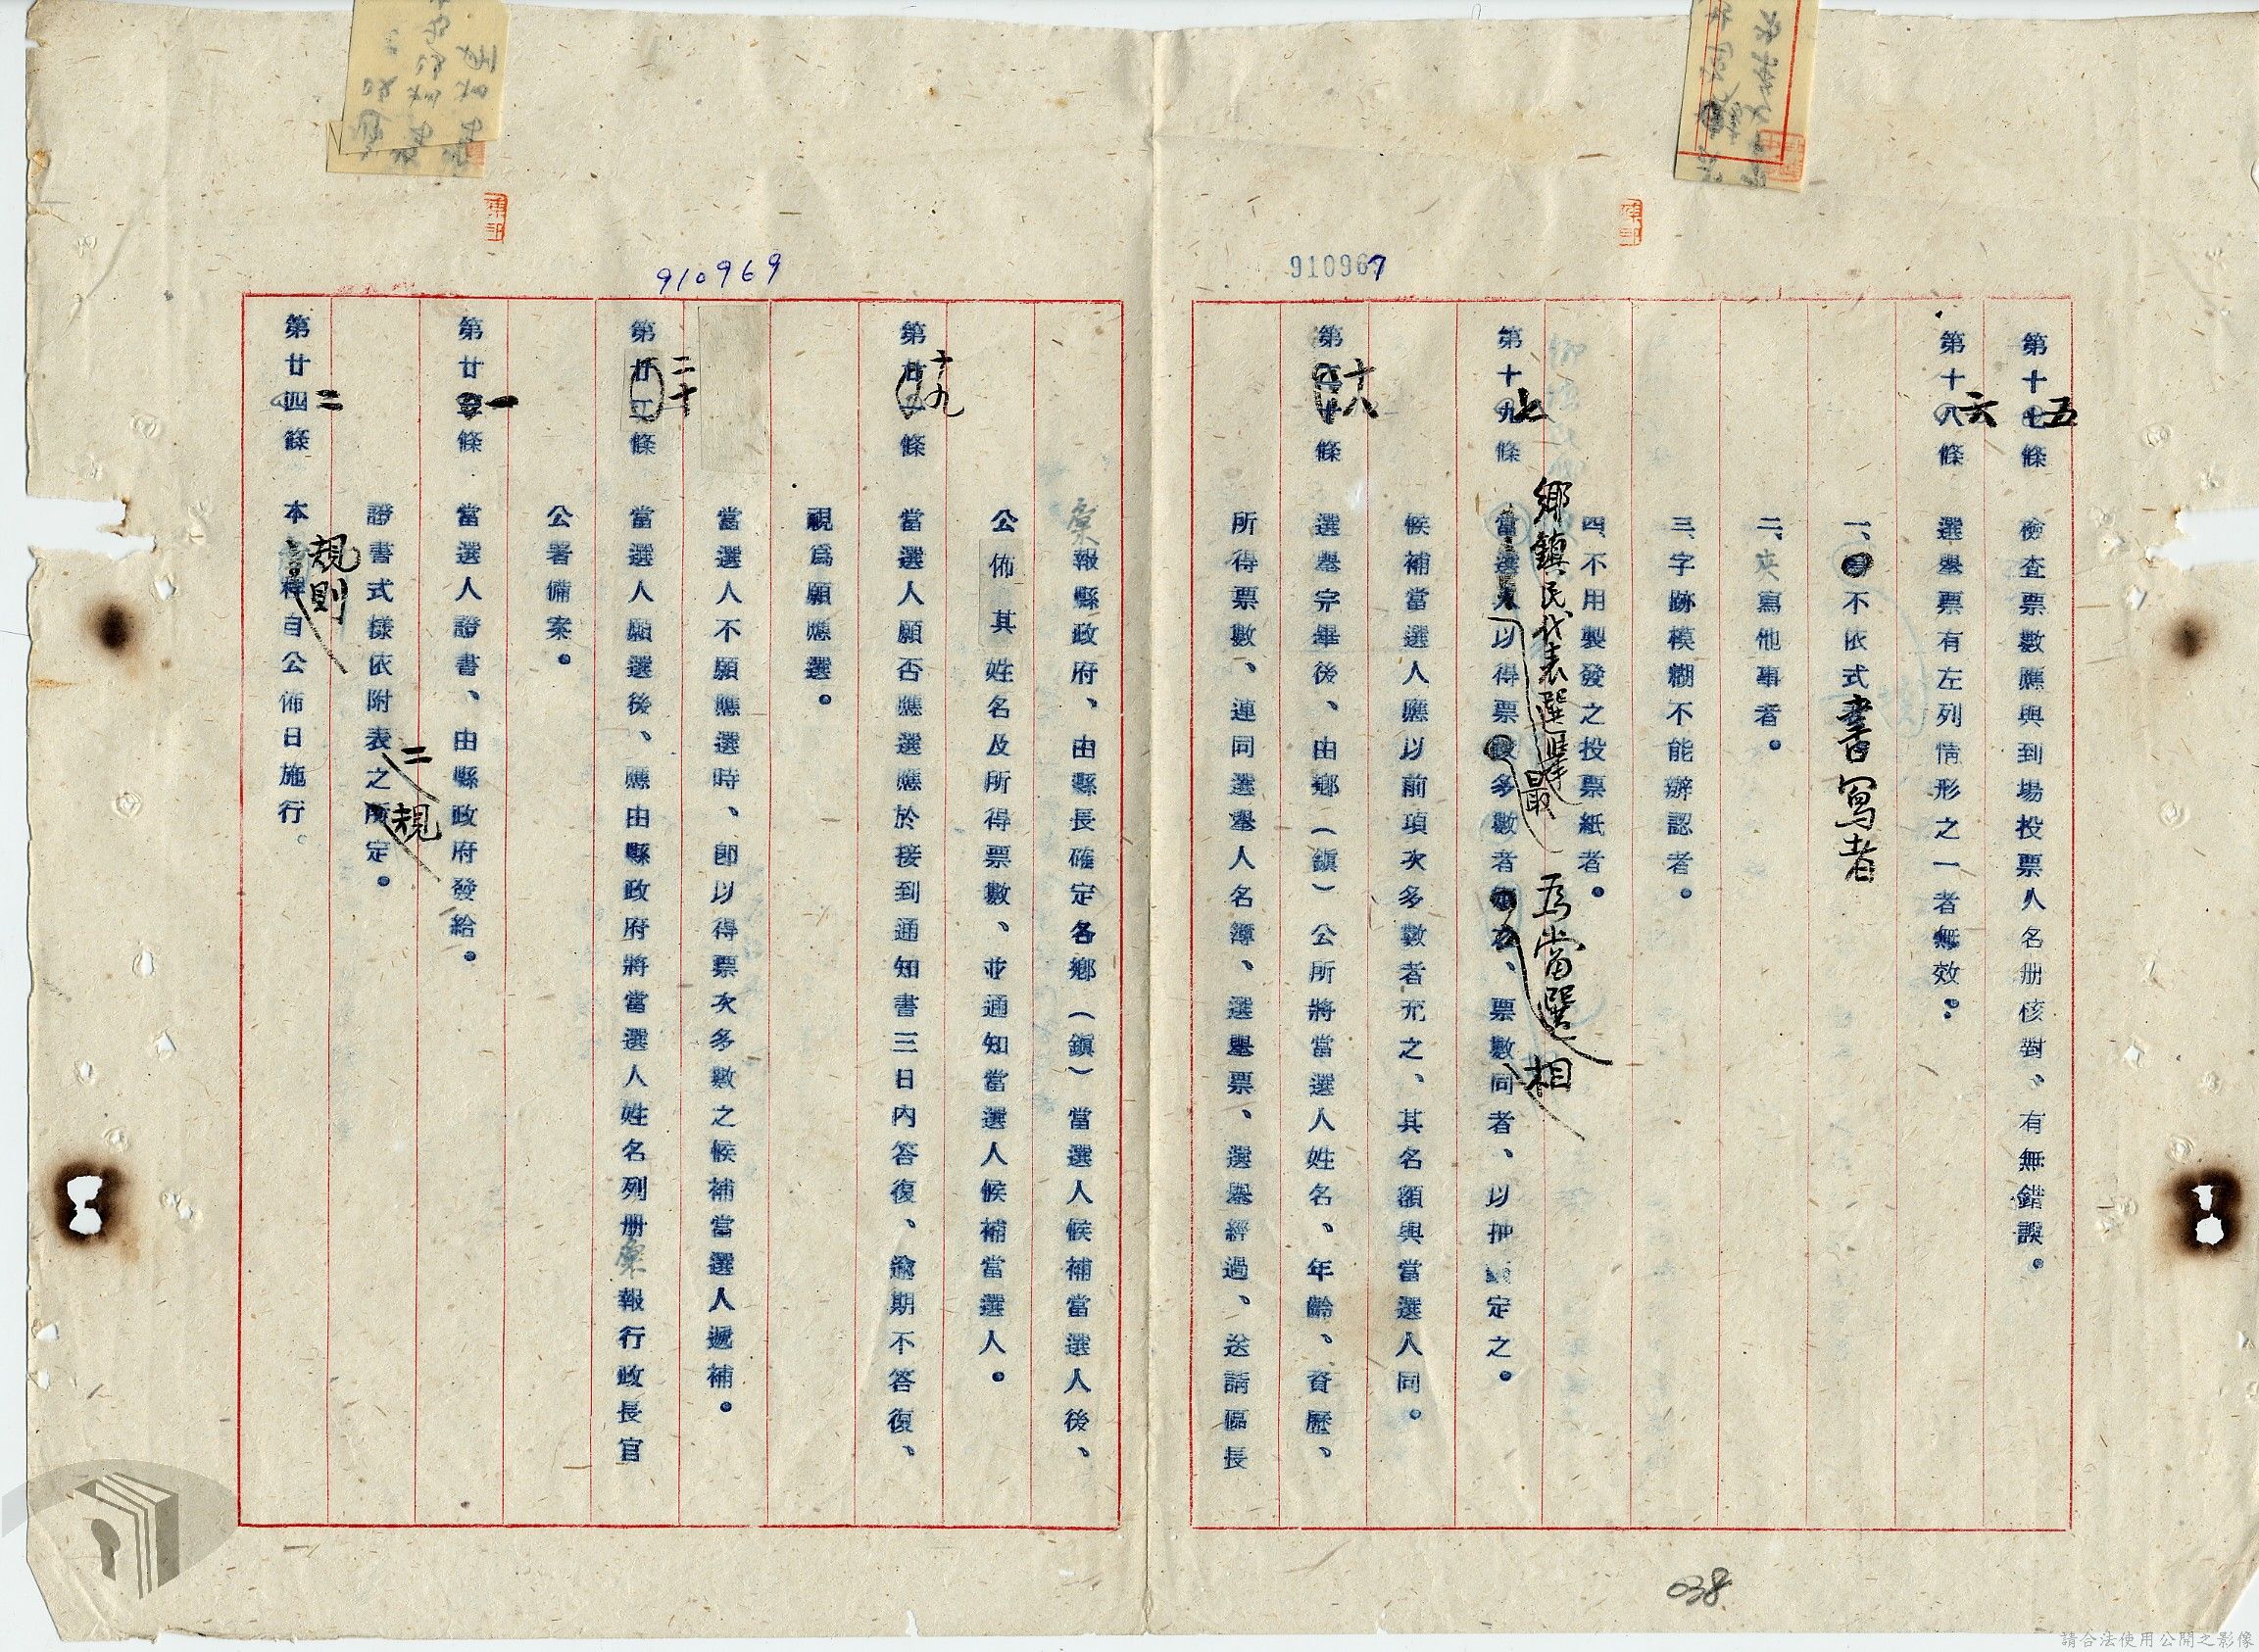 910967
第十七條 檢查票數應與到場投票人名册核對、有無錯誤。
五
第十八條 選舉票有左列情形之一者無效：
六
一、不依式書寫者
二、夾寫他事者。
三、字跡模糊不能辦認者。
四、不用製發之投票紙者。
鄉鎮民代表選舉 最 爲當選 相
第十九條 當選人以得票多數者、票數同者、以抽籤定之。
七
候補當選人應以前項次多數者充之、其名額與當選人同。
第二十條 選舉完畢後、由鄉（鎮）公所將當選人姓名、年齡、資歷、
十八
所得票數、連同選舉人名簿、選舉票、選舉經過、送請區長
910969
彙報縣政府、由縣長確定各鄉（鎮）當選人候補當選人後、
公佈其姓名及所得票數、並通知當選人候補當選人。
第廿一條 當選人願否應選應於接到通知書三日內答復、逾期不答復、
十九
視爲願應選。
當選人不願應選時、卽以得票次多數之候補當選人遞補。
第廿二條 當選人願選後、應由縣政府將當選人姓名列册彙報行政長官
二十
公署備案。
第廿三條 當選人證書、由縣政府發給。
一
證書式樣依附表之所定。
二 規
第廿四條 本章程自公佈日施行。
二 規則
038
請合法使用公開之影像